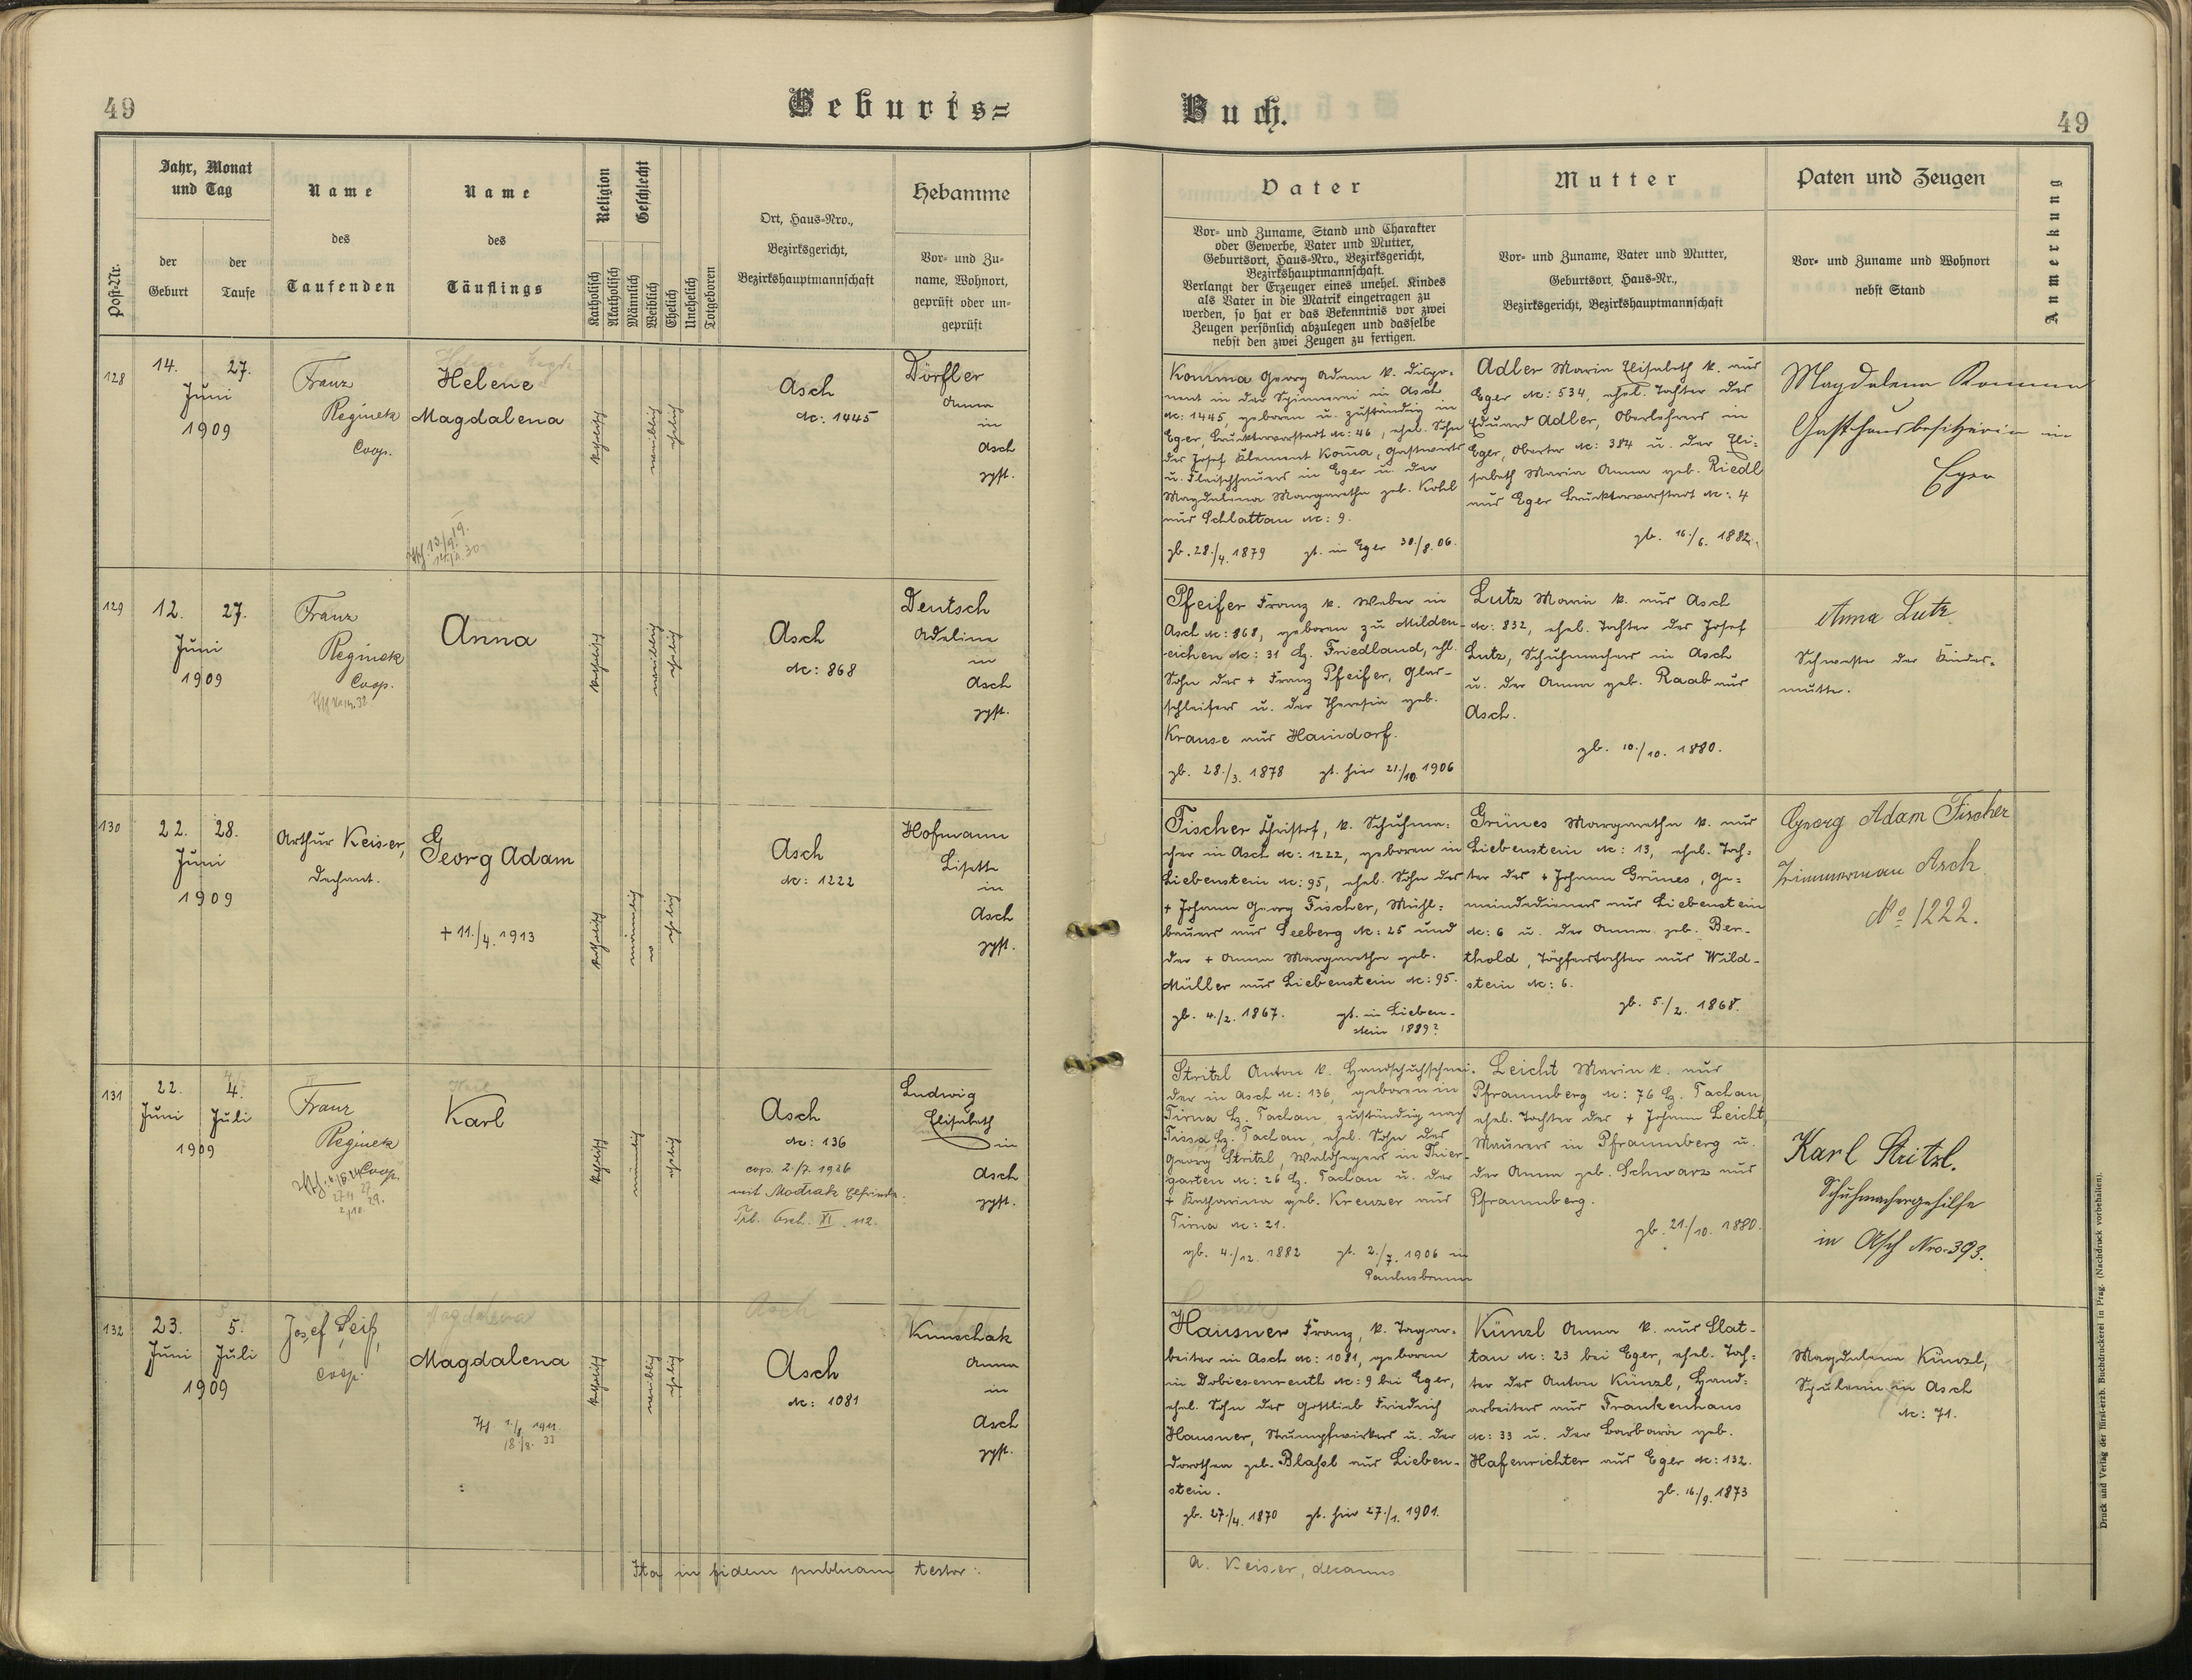 49
Geburts=
Buch.
49
Post-Nr.
Jahr, Monat
und Tag
der
Geburt
der
Taufe
Name
des
Taufenden
Name
des
Täuflings
Religion
Katholisch
Akatholisch
Geschlecht
Männlich
Weiblich
Ehelich
Unehelich
Totgeboren
Ort, Haus-Nro.,
Bezirksgericht,
Bezirkshauptmannschaft
Hebamme
Vor- und Zu-
name, Wohnort,
geprüft oder un-
geprüft
Vater
Vor- und Zuname, Stand und Charakter
oder Gewerbe, Vater und Mutter,
Geburtsort, Haus-Nro., Bezirksgericht,
Bezirkshauptmannschaft.
Verlangt der Erzeuger eines unehel. Kindes
als Vater in die Matrik eingetragen zu
werden, so hat er das Bekenntnis vor zwei
Zeugen persönlich abzulegen und dasselbe
nebst den zwei Zeugen zu fertigen.
Mutter
Vor- und Zuname, Vater und Mutter,
Geburtsort, Haus-Nr.,
Bezirksgericht, Bezirkshauptmannschaft
Paten und Zeugen
Vor- und Zuname und Wohnort
nebst Stand
Anmerkung
128
14. 27.
Juni
1909
Franz
Reginek
Coop.
Helene
Magdalena
katholisch
weiblich
ehelich
Asch
Nr: 1445
Dörfler
Anna
in
Asch
gpft.
Komma Georg Adam k. Dispo-
nent in der Spinnerei in Asch
Nr: 1445, geboren u. zuständig in
Eger, Brucktorvorstadt Nr: 46, ehel. Sohn
des Josef Klement Koma, Gastwirts
u. Fleischhauers in Eger u. der
Magdalena Margaretha geb. Kohl
aus Schlattau Nr: 9.
gb. 28./4. 1879 gt. in Eger 30./8. 06.
Adler Maria Elisabeth k. aus
Eger Nr: 534, ehel. Tochter des
Eduard Adler, Oberlehrers in
Eger, Obertor Nr: 384 u. der Eli-
sabeth Maria Anna geb. Riedl
aus Eger Brucktorvorstadt Nr: 4
gb. 16./6. 1882.
Magdalena Komma
Gasthausbesitzerin in
Eger
129
12. 27.
Juni
1909
Franz
Reginek
Coop.
Anna
katholisch
weiblich
ehelich
Asch
Nr: 868
Deutsch
Adeline
in
Asch
gpft.
Pfeifer Franz k. Weber in
Asch Nr: 868, geboren zu Milden-
eichen Nr: 31 Bz. Friedland, ehl.
Sohn des + Franz Pfeifer, Glas-
schleifers u. der Theresia geb.
Krause aus Haindorf.
gb. 28./3. 1878 gt. hier 21./10. 1906
Lutz Maria k. aus Asch
Nr: 832, ehel. Tochter des Josef
Lutz, Schuhmachers in Asch
u. der Anna geb. Raab aus
Asch.
gb. 10./10. 1880.
Anna Lutz
Schwester der Kindes-
mutter.
130
22. 28.
Juni
1909
Arthur Keiser,
Dechant.
Georg Adam
+ 11./4. 1913
katholisch
männlich
ehelich
Asch
Nr: 1222
Hofmann
Lisette
in
Asch
gpft.
Fischer Christof, k. Schuhma-
cher in Asch Nr: 1222, geboren in
Liebenstein Nr: 95, ehel. Sohn des
+ Johann Georg Fischer, Mühl-
bauers aus Seeberg Nr: 25 und
der + Anna Margaretha geb.
Müller aus Liebenstein Nr: 95.
gb. 4./2. 1867. gt. in Lieben-
stein 1889?
Grünes Margaretha k. aus
Liebenstein Nr: 13, ehel. Toch-
ter des + Johann Grünes, Ge-
meindedieners aus Liebenstein
Nr: 6 u. der Anna geb. Ber-
thold, Töpferstochter aus Wild-
stein Nr: 6.
gb. 5./2. 1868.
Georg Adam Fischer
Zimmerman Asch
No 1222.
131
22. 4.
Juni Juli
1909
Franz
Reginek
Coop.
Karl
katholisch
männlich
ehelich
Asch
Nr: 136
cop. 2./7. 1926
mit Modrak Elfrieda.
Trb. Asch. XI. 112.
Ludwig
Elisabeth
in
Asch
gpft.
Stritzl Anton k. Handschuhschnei-
der in Asch Nr: 136, geboren in
Tirna Bz. Tachau, zuständig nach
Tissa Bz. Tachau, ehel. Sohn des
Georg Stritzl, Waldhegers in Thier-
garten Nr: 26 Bz. Tachau u. der
+ Katharina geb. Kreuzer aus
Tirna Nr: 21.
gb. 4./12. 1882 gt. 2./7. 1906 in
Paulusbrunn
Leicht Maria k. aus
Pfraumberg Nr: 76 Bz. Tachau,
ehel. Tochter des + Johann Leicht,
Maurers in Pfraumberg u.
der Anna geb. Schwarz aus
Pfraumberg.
gb. 21./10. 1880.
Karl Stritzl.
Schuhmachergehilfe
in Asch Nro. 393.
132
23. 5.
Juni Juli
1909
Josef Seiß,
Coop.
Magdalena
katholisch
weiblich
ehelich
Asch
Nr: 1081
Kunschak
Anna
in
Asch
gpft.
Hausner Franz, k. Tagar-
beiter in Asch Nr: 1081, geboren
in Dobiesenreuth Nr: 9 bei Eger,
ehel. Sohn des Gottlieb Friedrich
Hausner, Strumpfwirkers u. der
Dorothea geb. Blahsl aus Lieben-
stein.
gb. 27./4. 1870 gt. hier 27./1. 1901.
Künzl Anna k. aus Slat-
tau Nr: 23 bei Eger, ehel. Toch-
ter des Anton Künzl, Hand-
arbeiters aus Frankenhaus
Nr: 33 u. der Barbara geb.
Hafenrichter aus Eger Nr: 132.
gb. 16./9. 1873
Magdalena Künzl,
Spulerin in Asch
Nr: 71.
Ita in fidem publicam testor:
A. Keiser, decanus
Druck und Verlag der fürst-erzb. Buchdruckerei in Prag. (Nachdruck vorbehalten).